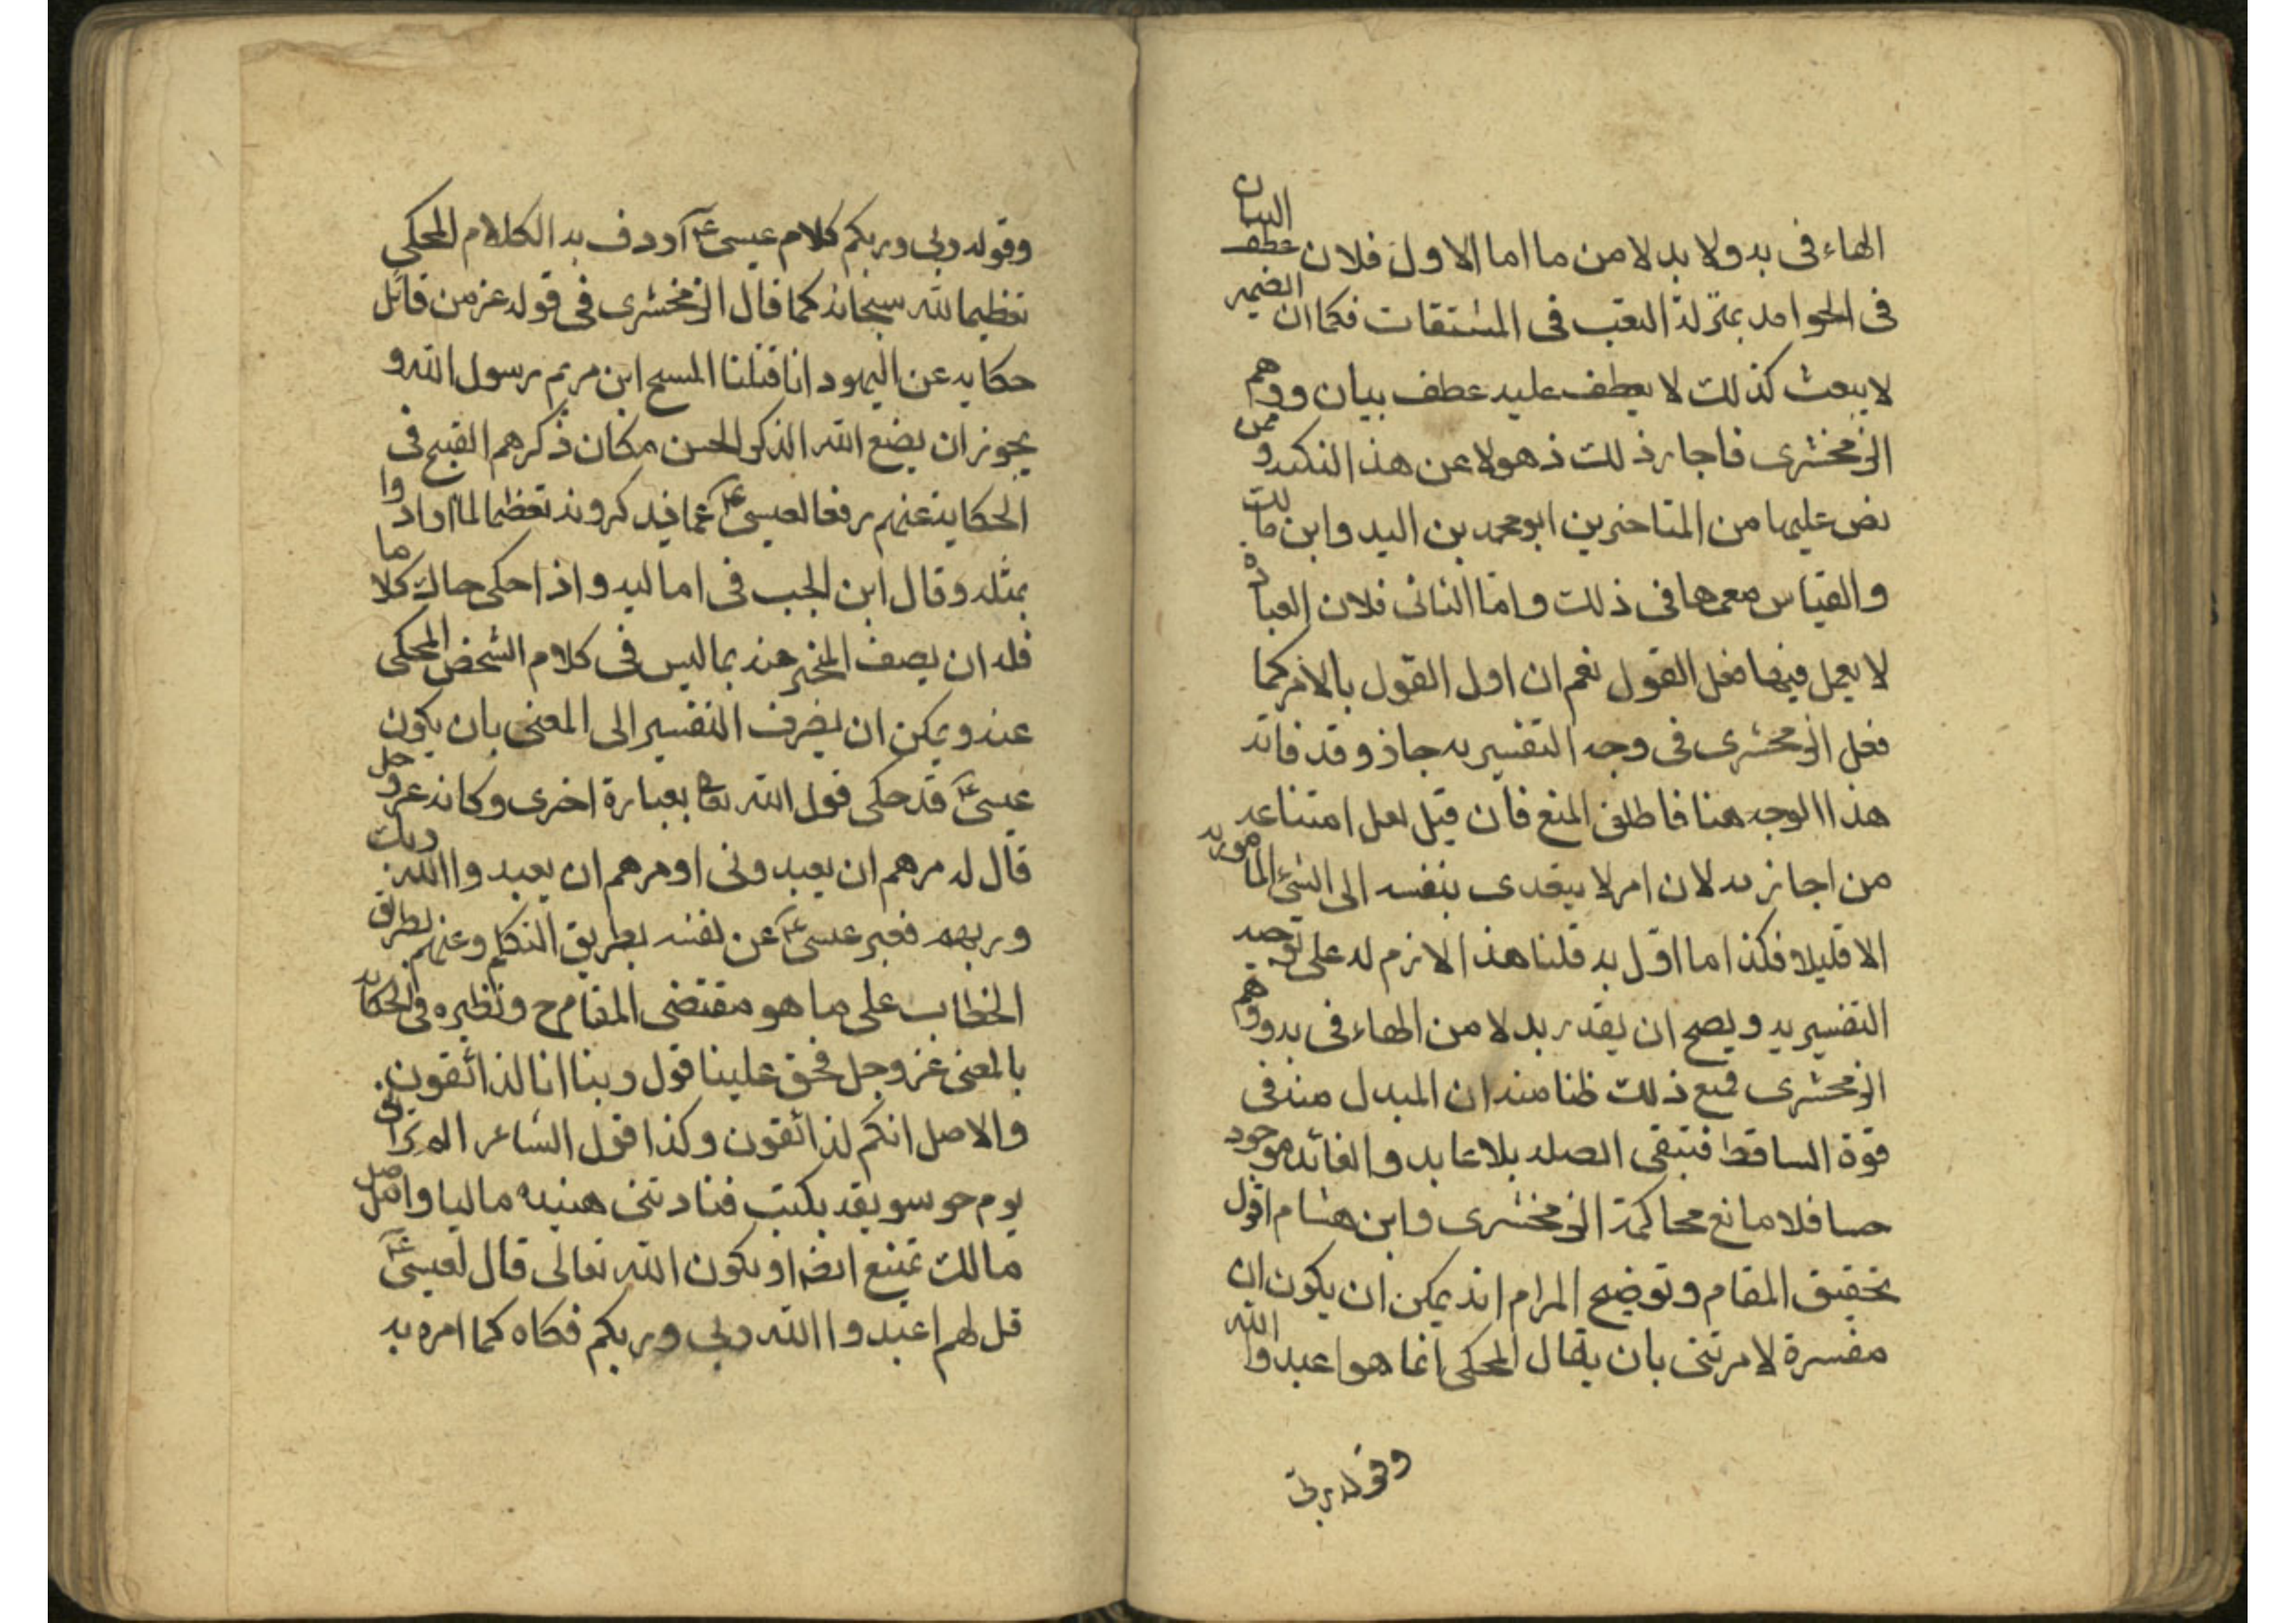 الهاء فى به ولا بدلا من ما اما الاول فلان عطف البيان
فى الجوامد بمنزلة النعت فى المشتقات فكما ان الضمير
لا ينعت كذلك لا يعطف عليه عطف بيان ووهم
الزمخشرى فاجاز ذلك ذهولا عن هذ النكته وممن
نص عليها من المتاخرين ابو محمد بن السيد وابن مالك
والقياس معهما فى ذلك واما الثانى فلان العباده
لا يعمل فيها فعل القول نعم ان اول القول بالامر كما
فعل الزمخشرى فى وجه التفسيريه جاز وقد فاته
هذا الوجه هنا فاطلق المنع فان قيل لعل امتناعه
من اجازته لان امر لا يتعدى بنفسه الى الشئ المامور به
الا قليلا فكذا ما اول به قلنا هذا لازم له على توجيه
التفسيريه ويصح ان يقدر بدلا من الهاء فى به ووهم
الزمخشرى فمنع ذلك ظنا منه ان المبدل منه فى
قوة الساقط فتبقى الصله بلا عايد والعائد موجود
حسا فلا مانع محاكمة الزمخشرى وابن هشام اقول
تحقيق المقام وتوضيح المرام انه يمكن ان يكون ان
مفسرة لامرتنى بان يقال المحكى انما هو اعبدوا الله
وقوله ربى
وقوله ربى وربكم كلام عيسى ع اردف به الكلام المحكى
تعظيما لله سبحانه كما قال الزمخشرى فى قوله عز من قائل
حكاية عن اليهود انا قتلنا المسيح ابن مريم رسول الله و
يجوز ان يضع الله الذكر الحسن مكان ذكرهم القبيح فى
الحكاية عنهم رفعا لعيسى ع عما يذكرونه تعظيما لما ارادوا
بمثله وقال ابن الحجب فى اماليه واذا حكى حاك كلاما
فله ان يصف المخبر عنه بما ليس فى كلام الشخص المحكى
عنه ويمكن ان يصرف التفسير الى المعنى بان يكون
عيسى ع قد حكى قول الله تعا بعبارة اخرى وكانه عز وجل
قال له مرهم ان يعبدونى او مرهم ان يعبدوا الله ربك
وربهم فعبر عيسى ع عن نفسه بطريق التكلم وعنهم بطريق
الخطاب على ما هو مقتضى المقام ح ونظيره فى الحكايه
بالمعنى عز وجل فحق علينا قول ربنا انا لذائقون
والاصل انكم لذائقون وكذا قول الشاعر الم ترانى
يوم جو سويقه بكيت فنادتنى هنيده ماليا واصل
مالك تمتنع ايضا او يكون الله تعالى قال لعيسى ع
قل لهم اعبدوا الله ربى وربكم فحكاه كما امره به